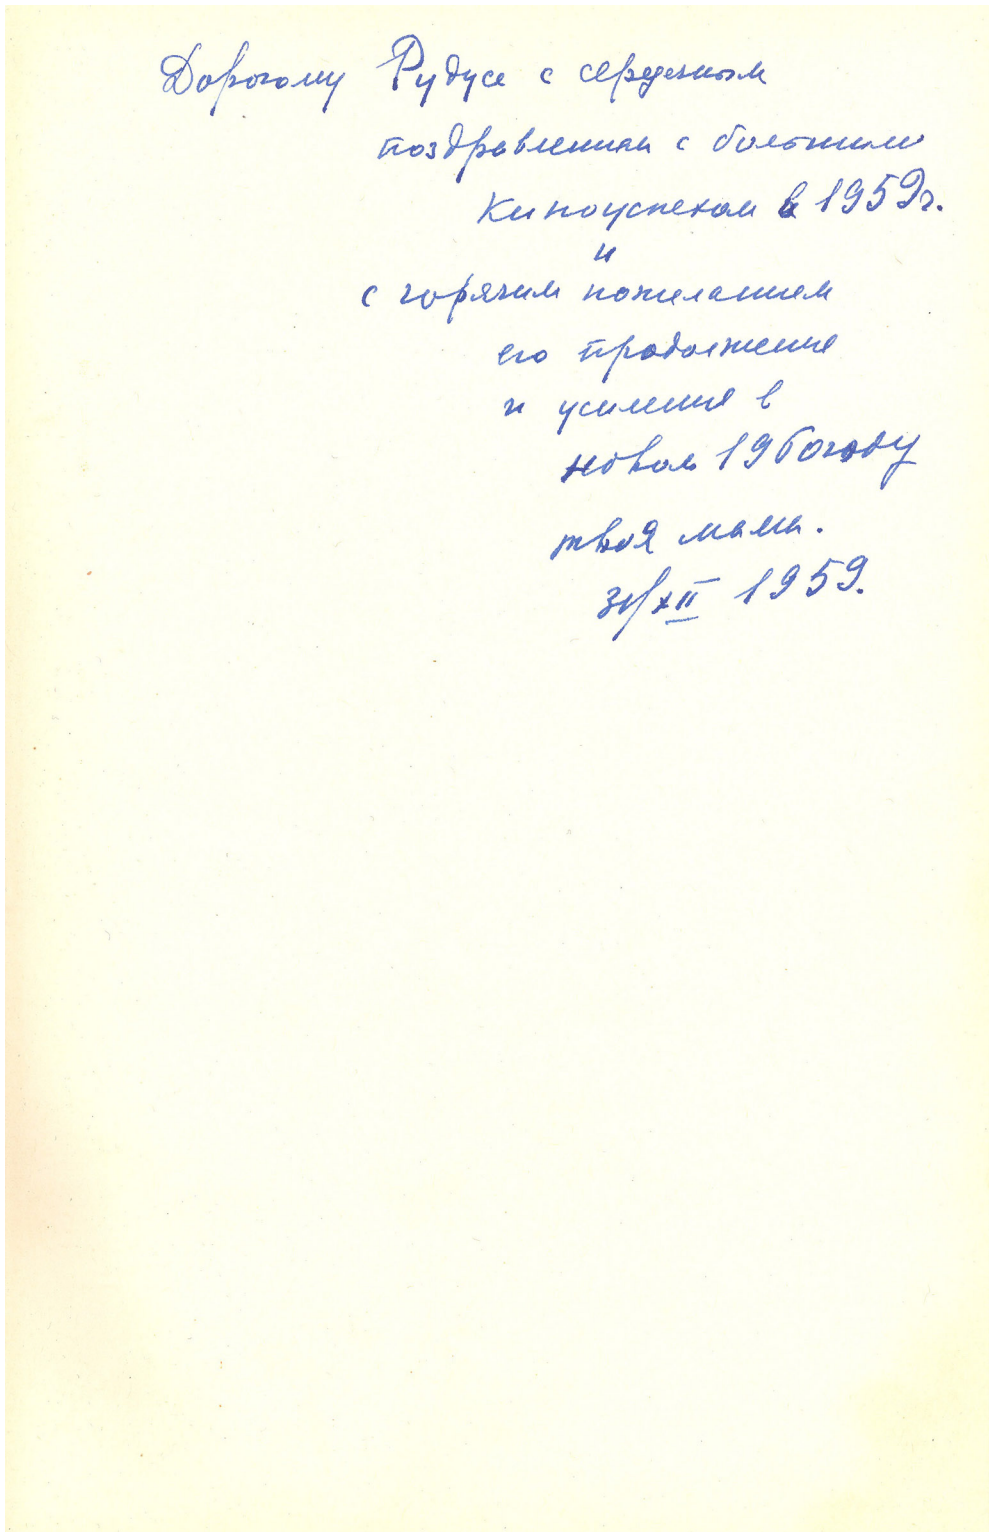 Дорогому Рудусе с сердечным
поздравлением с большим
Киноуспехом в 1959 г.
и
с горячим пожеланием
его продолжения
и усиления в
новом 1960 году
твоя мама.
31/XII 1959.